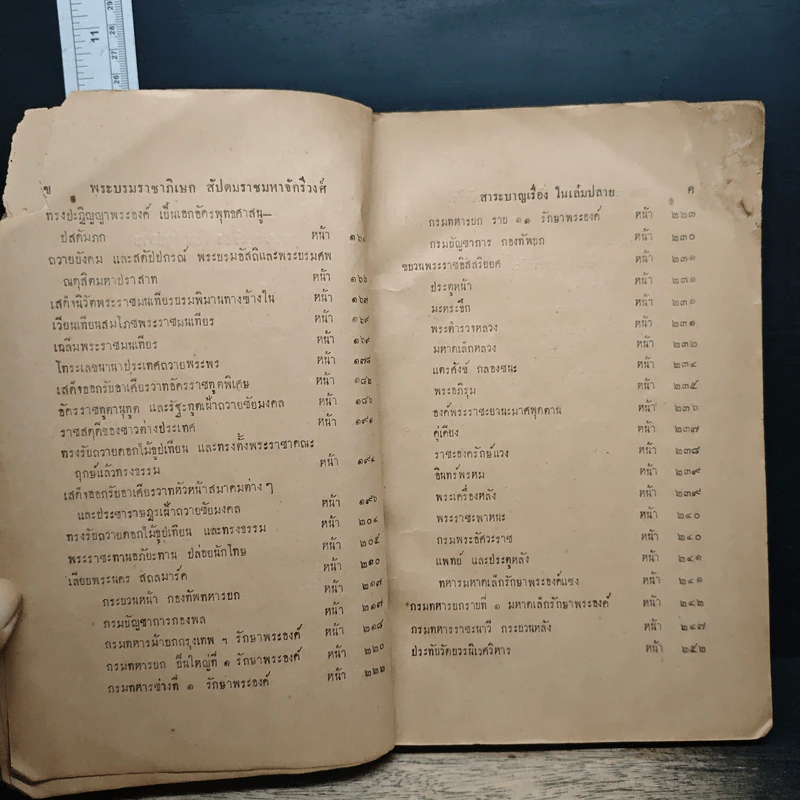 11
29
28
27
26
ข พระบรมราชาภิเษก สัปตมราชมหาจักรีวงศ์
ทรงปะฏิญญาพระองค์ เป็นเอกอัครพุทธศาสนู—
ปสดัมภก หน้า
ถวายบังคม และสดัปปกรณ์ พระบรมอัสถิและพระบรมศพ
ณดุสิตมหาปราสาท หน้า ๑๖๖
เสด็จนิวัตพระราชมนเทียรบรมพิมานทางข้างใน หน้า ๑๖๗
เวียนเทียนสมโภชพระราชมนเทียร หน้า ๑๖๙
เฉลิมพระราชมนเทียร หน้า ๑๖๙
โทระเลขนานาประเทศถวายพระพร หน้า ๑๗๘
เสด็จออกรับอาเศียรวาทอัครราชทูตพิเศษ หน้า ๑๘๒
อัครราชทูตานุทูต และรัฐะทูตเฝ้าถวายชัยมงคล หน้า ๑๘๖
ราชสดุดีของชาวต่างประเทศ หน้า ๑๙๑
ทรงรับถวายดอกไม้ธูปเทียน และทรงตั้งพระราชาคณะ
ฤกษ์แล้วทรงธรรม หน้า ๑๙๔
เสด็จออกรับอาเศียรวาทหัวหน้าสมาคมต่าง ๆ
และประชาราษฎรเฝ้าถวายชัยมงคล หน้า ๑๙๖
ทรงรับถวายดอกไม้ธูปเทียน และทรงธรรม หน้า ๒๐๔
พระราชะทานอภัยะทาน ปล่อยนักโทษ หน้า ๒๐๕
เลียบพระนคร สถลมาร์ค หน้า ๒๑๐
กระบวนหน้า กองทัพทหารบก หน้า ๒๑๗
กรมบัญชาการกองพล หน้า ๒๑๗
กรมทหารม้าบกกรุงเทพ ฯ รักษาพระองค์ หน้า ๒๑๘
กรมทหารบก ปืนใหญ่ที่ ๑ รักษาพระองค์ หน้า ๒๒๐
กรมทหารช่างที่ ๑ รักษาพระองค์ หน้า ๒๒๒
สาระบาญเรื่อง ในเล่มปลาย ค
กรมทหารบก ราบ ๑๑ รักษาพระองค์ หน้า ๒๒๓
กรมบัญชาการ กองทัพบก หน้า ๒๓๐
ขบวนพระราชอิสสริยยศ หน้า ๒๓๑
ประตูหน้า หน้า ๒๓๑
มะตระธึก หน้า ๒๓๑
พระตำรวจหลวง หน้า ๒๓๑
มหาดเล็กหลวง หน้า ๒๓๒
แตรสังข์ กลองชนะ หน้า ๒๓๔
พระอภิรุม หน้า ๒๓๕
องค์พระราชะยานะมาศพุดตาน หน้า ๒๓๖
คู่เคียง หน้า ๒๓๗
ราชะองครักษ์แวง หน้า ๒๓๘
อินทร์พรหม หน้า ๒๓๙
พระเครื่องหลัง หน้า ๒๓๙
พระราชะพาหนะ หน้า ๒๔๐
กรมพระอัศวะราช หน้า ๒๔๐
แพทย์ และประตูหลัง หน้า ๒๔๑
ทหารมหาดเล็กรักษาพระองค์แซง หน้า ๒๔๑
กรมทหารบกราบที่ ๑ มหาดเล็กรักษาพระองค์ หน้า ๒๔๒
กรมทหารราชะนาวี กระบวนหลัง หน้า ๒๔๗
ประทับวัดบวรนิเวศวิหาร หน้า ๒๕๒